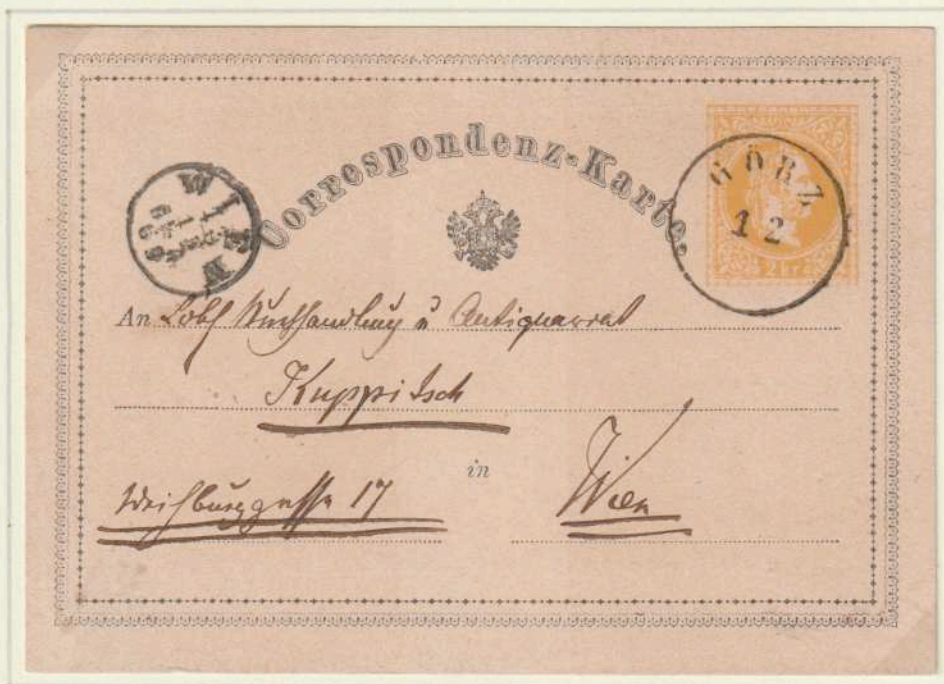 Correspondenz-Karte.
WIEN
GÖRZ
12
2 kr
An Löbl Buchhandlung u Antiquariat
Kuppitsch
in
Weihburggasse 17
Wien